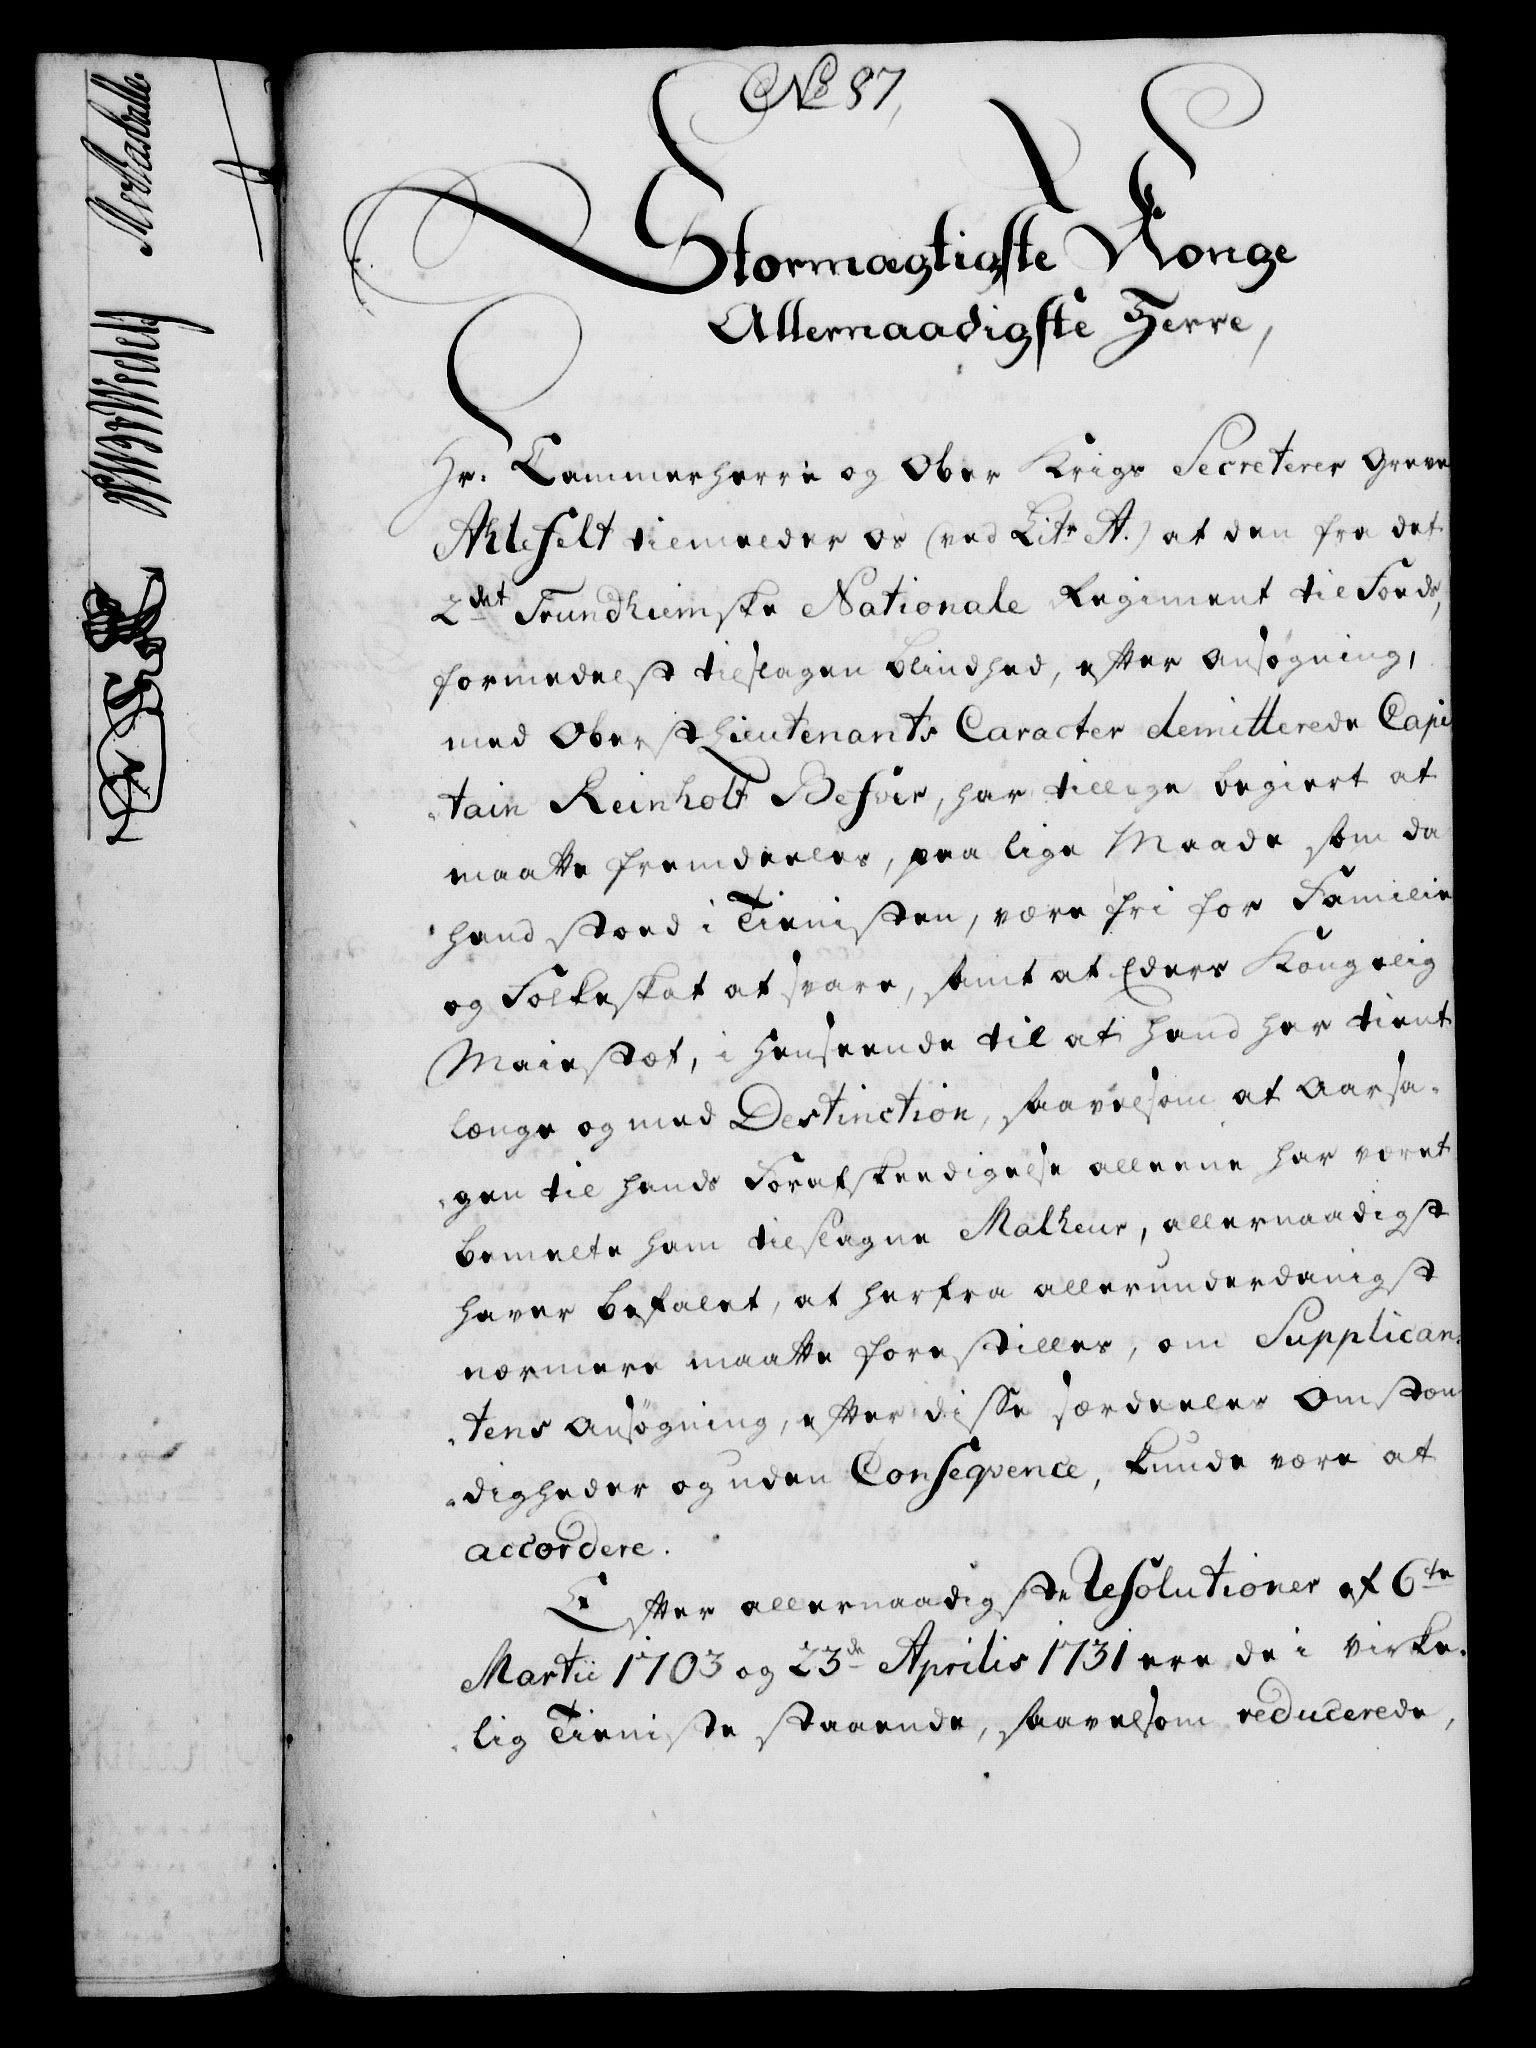 No 87,
Stormægtigste Konge
Allernaadigste Herre,
Hr. Cammerherre og Ober Krigs Secreterer Greve
Ahlefelt tilmelder os (ved Litr A.) at den fra det
2det Trundhiemske Nationale Regiment til Foeds,
formedelst tilslagen blindhed, efter ansøgning,
med Oberstlieutenants Caracter demitterede Capi
tain Reinholt Besvir, har tillige begiert at
maatte fremdeeles, paa lige Maade som da
hand stoed i Tienisten, være fri for Familie
og Folkeskat at svare, samt at Eders Kongelig
Maiestæt, i henseende til at hand har tient
længe og med Destinction, saavelsom at aarsa-
gen til hands Forafskeedigelse alleene har været
bemelte ham tilslagne Malheur, allernaadigst
haver befalet, at herfra allerunderdanigst
nærmere maatte forestilles, om Supplican-
tens ansøgning, efter disse særdeeles omstæn
digheder og uden Conseqvence, kunde være at
accordere.
Efter allernaadigste Resolutioner af 6te
Martii 1703 og 23de Aprilis 1731 ere de i virke-
lig Tieniste staaende, saavelsom reducerede,